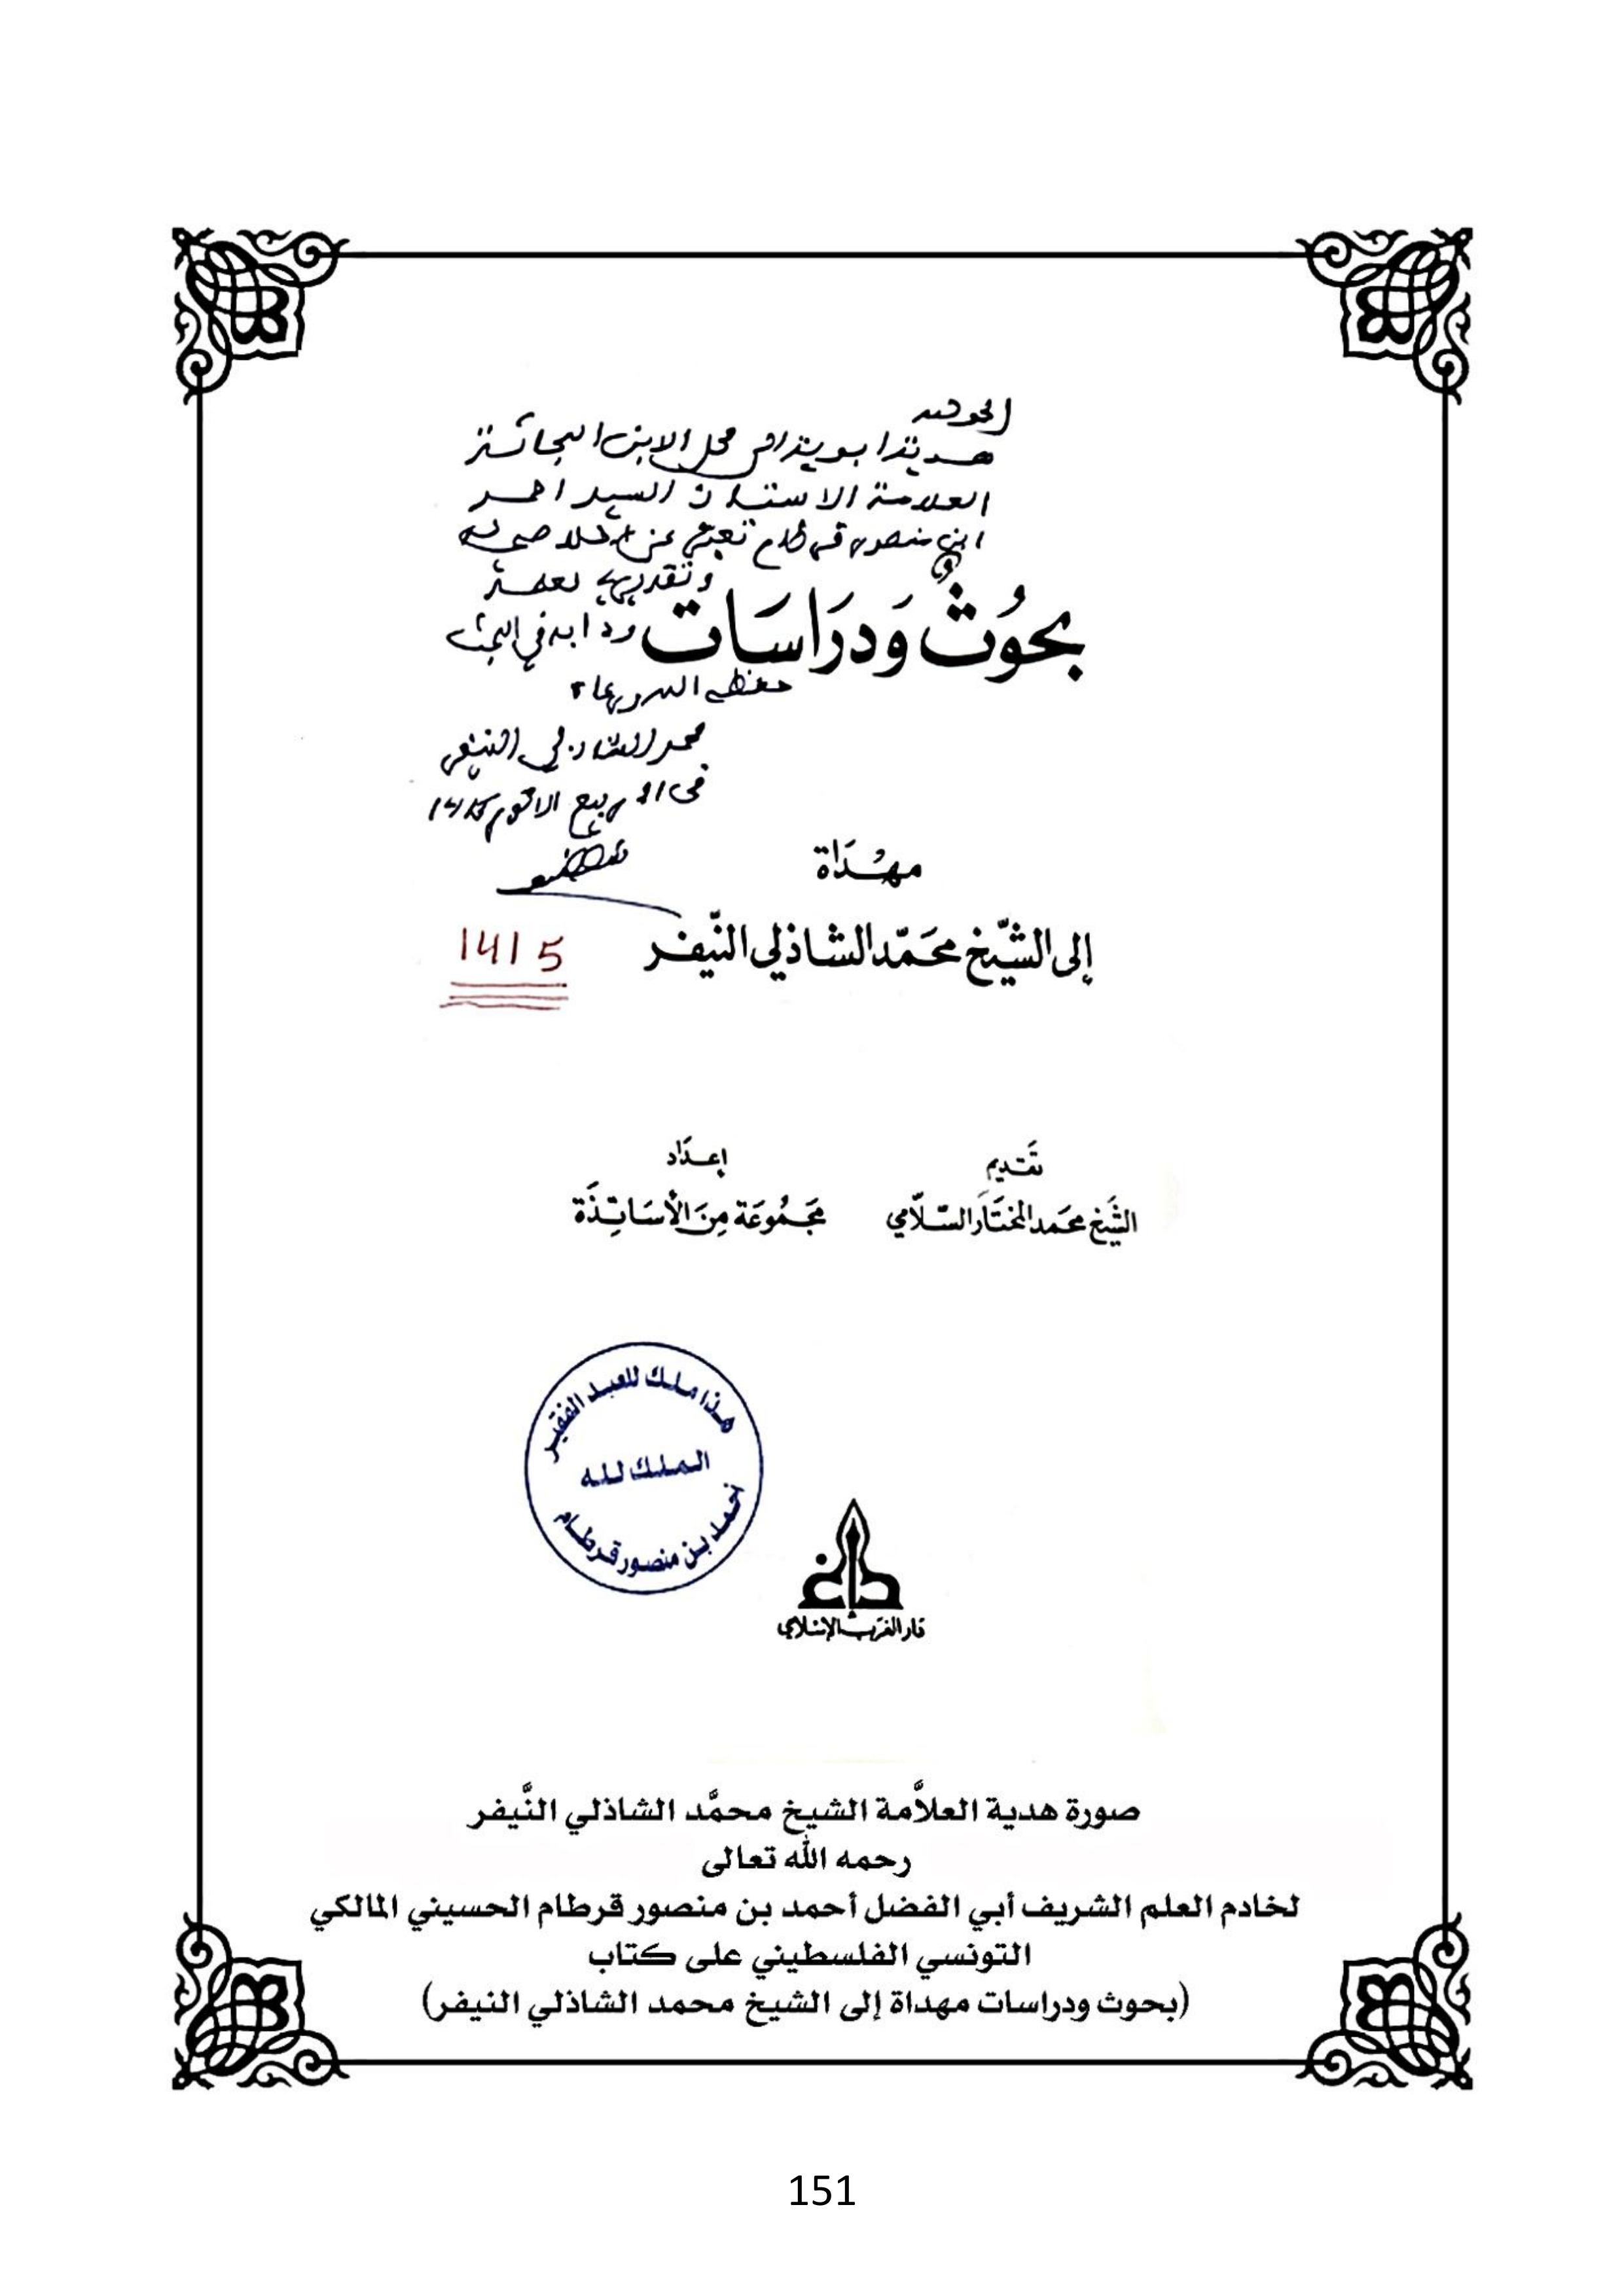 الحمد لله
هدية ابوية الى محل الابن البحاثة
العلامة الاستاذ السيد احمد
ابن منصور قرطام تعبر عن اخلاصي له
وتقديري لعلمه
ودابه في البحث
بحُوثٌ وَدرَاسَات
حفظه الله ورعاه
محمد الشاذلي النيفر
في ربيع الانور 1415
مهُدَاة
إلى الشيّخ محَمّد الشاذلي النّيفر
1415
تقديم
إعداد
الشيخ محمد المختار السّلامي
مجموعة من الأساتذة
هذا ملك للعبد الفقير
الملك لله
أحمد بن منصور قرطام
دار الغرب الإسلامي
صورة هدية العلاَّمة الشيخ محمَّد الشاذلي النَّيفر
رحمه الله تعالى
لخادم العلم الشريف أبي الفضل أحمد بن منصور قرطام الحسيني المالكي
التونسي الفلسطيني على كتاب
(بحوث ودراسات مهداة إلى الشيخ محمد الشاذلي النيفر)
151